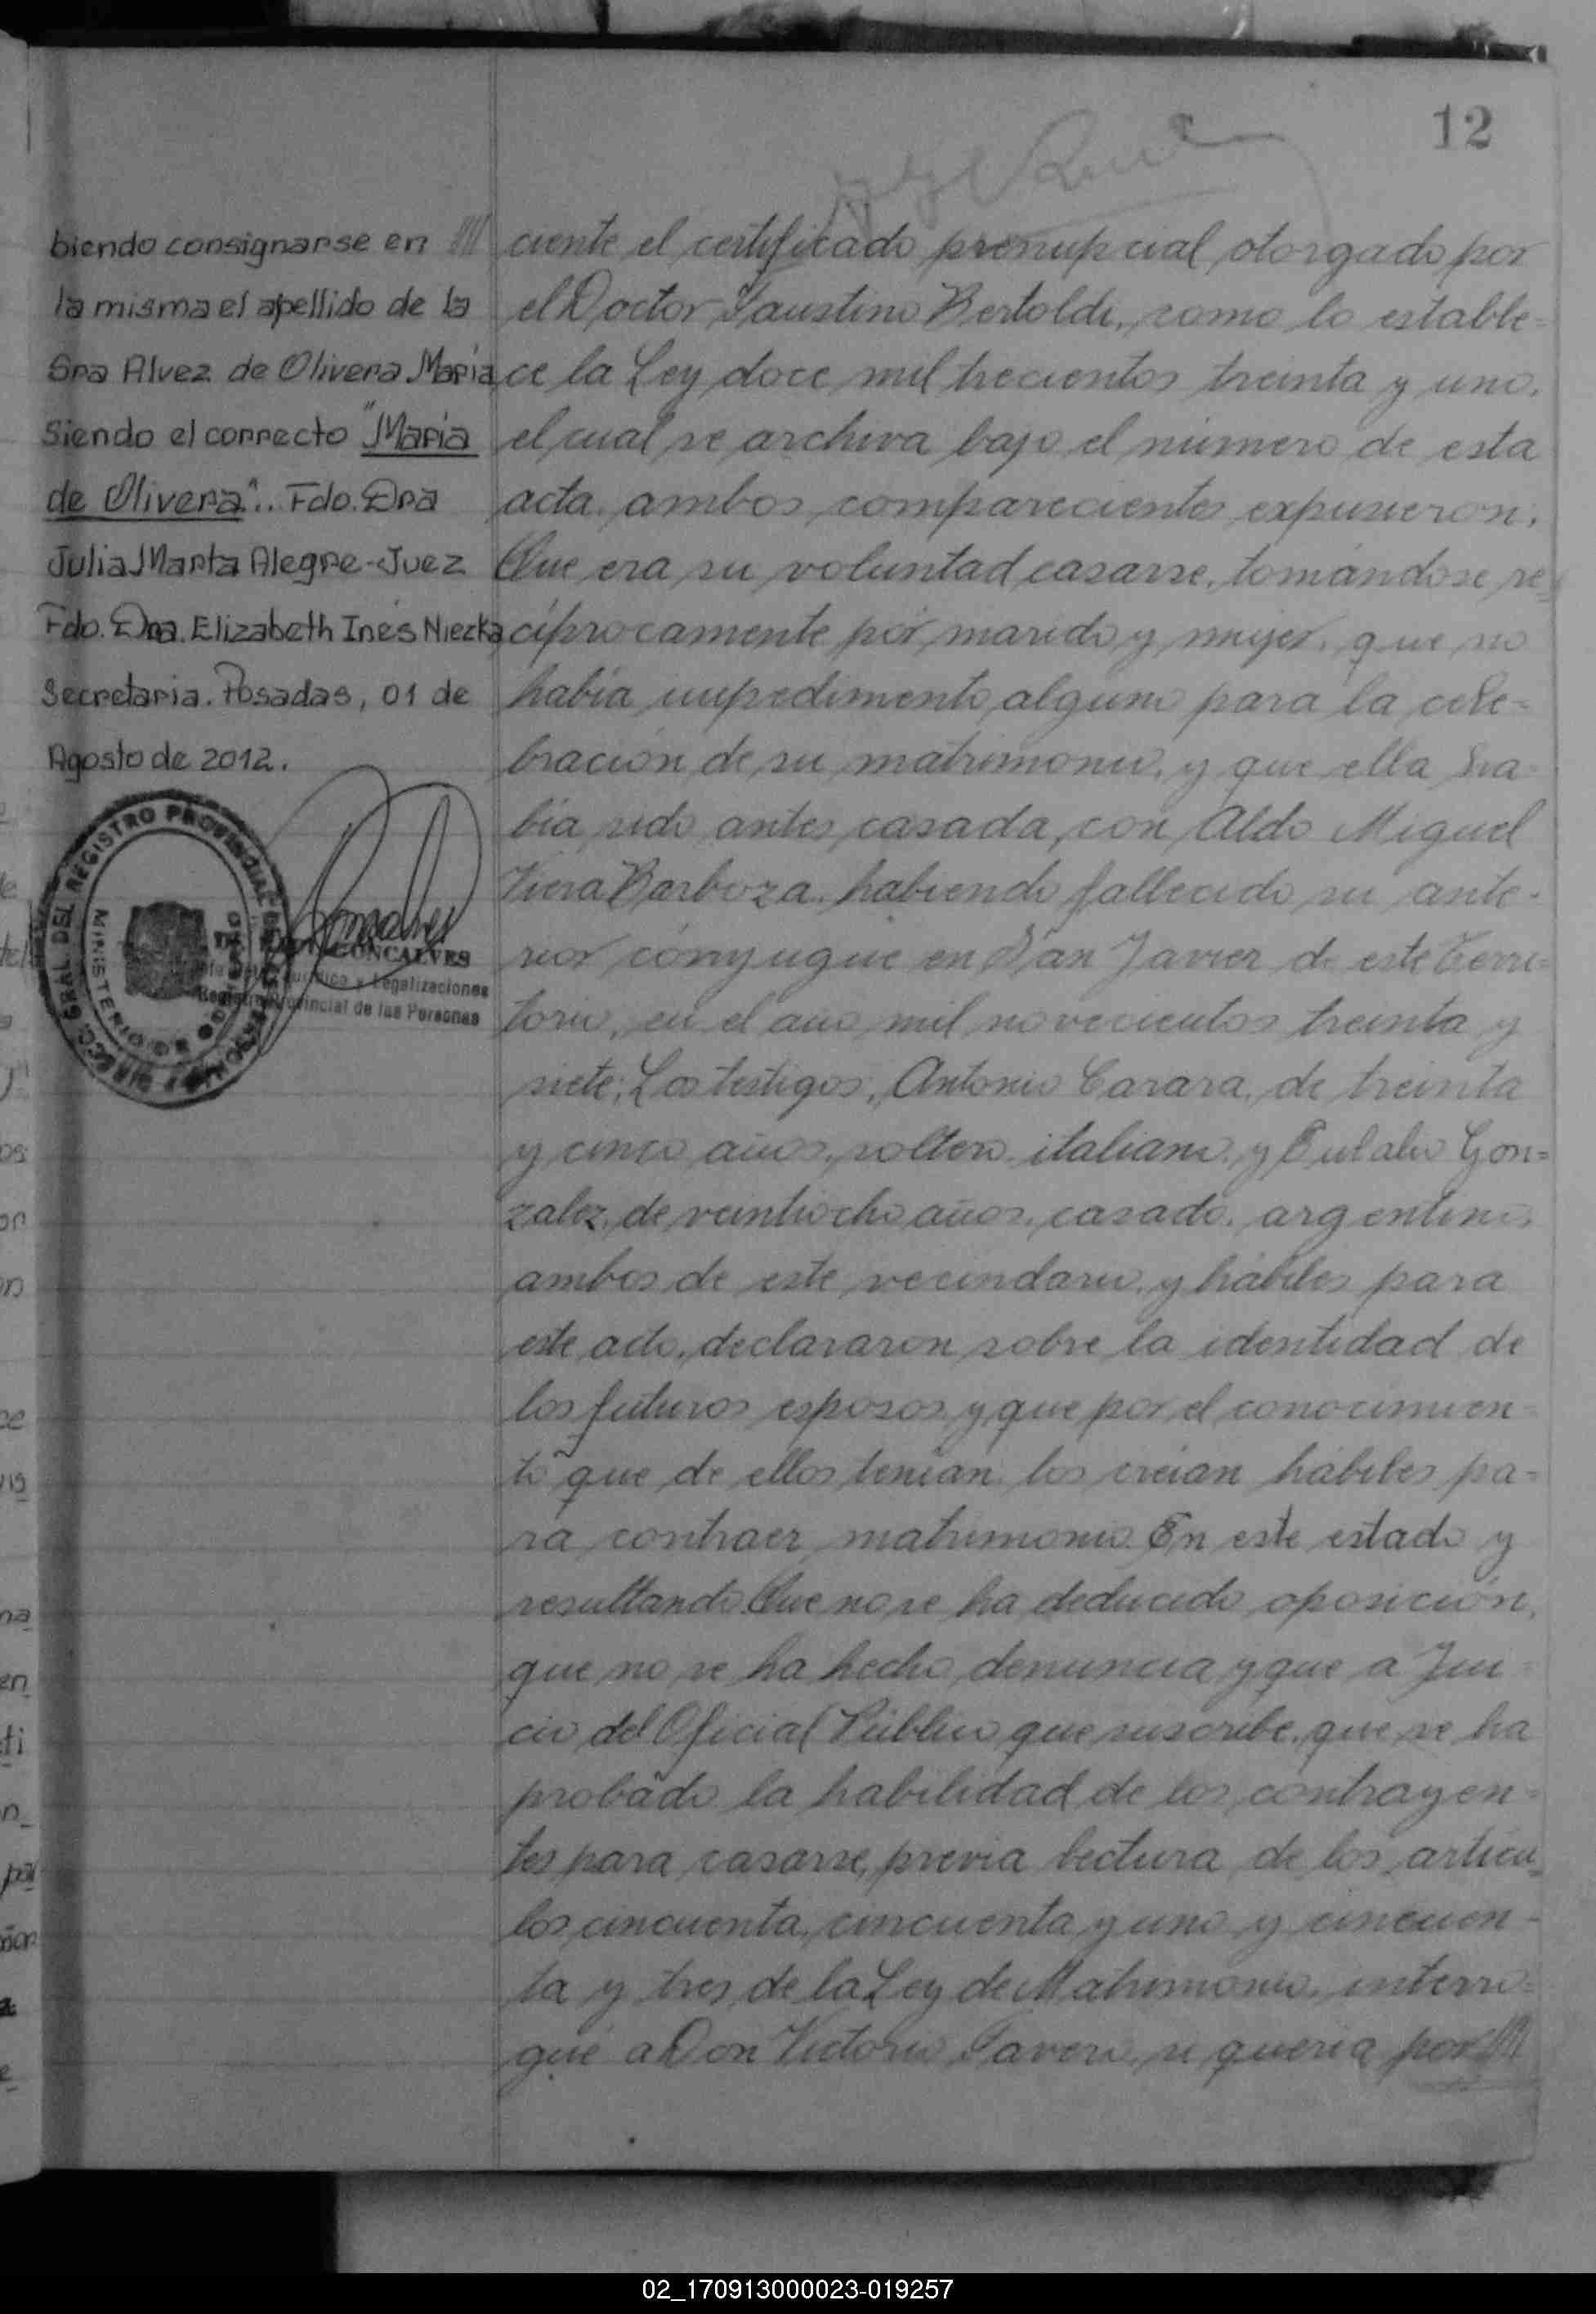 12
biendo consignarse en
la misma el apellido de la
Sra Alvez de Olivera Maria
Siendo el correcto "Maria
de Olivera".. Fdo. Dra
Julia Marta Alegre-Juez
Fdo. Dra. Elizabeth Inés Niezka
Secretaria. Posadas, 01 de
Agosto de 2012.
DIREC. GRAL DEL REGISTRO PROVINCIAL DE LAS PERSONAS
MINISTERIO DE GOBIERNO
GONCALVES
Jurídica y Legalizaciones
Registro Provincial de las Personas
ciente el certificado prenupcial otorgado por
el Doctor Faustino Bertoldi, como lo estable=
ce la Ley doce mil trecientos treinta y uno,
el cual se archiva bajo el número de esta
acta, ambos comparecientes expusieron:
Que era su voluntad casarse, tomándose re
cíprocamente por marido y mujer, que no
había impedimento alguno para la cele=
bración de su matrimonio, y que ella ha
bía sido antes casada, con Aldo Miguel
Viera Barboza, habiendo fallecido su ante-
rior cónyugue en San Javier de este Terri=
torio, en el año mil novecientos treinta y
siete; Los testigos, Antonio Carara, de treinta
y cinco años, soltero, italiano, y Eulalio Gon=
zalez, de veintiocho años, casado, argentino,
ambos de este vecindario, y hábiles para
este acto, declararon sobre la identidad de
los futuros esposos y que por el conocimien
to que de ellos tenían, los creían hábiles pa=
ra contraer matrimonio. En este estado y
resultando Que no se ha deducido oposición,
que no se ha hecho denuncia y que a Jui=
cio del Oficial Público que suscribe, que se ha
probado la habilidad de los contrayen=
tes para casarse, previa lectura de los artícu
los cincuenta, cincuenta y uno y cincuen-
ta y tres de la Ley de Matrimonio, interro=
gué a Don Victorio Favero, si quería por
02_170913000023-019257